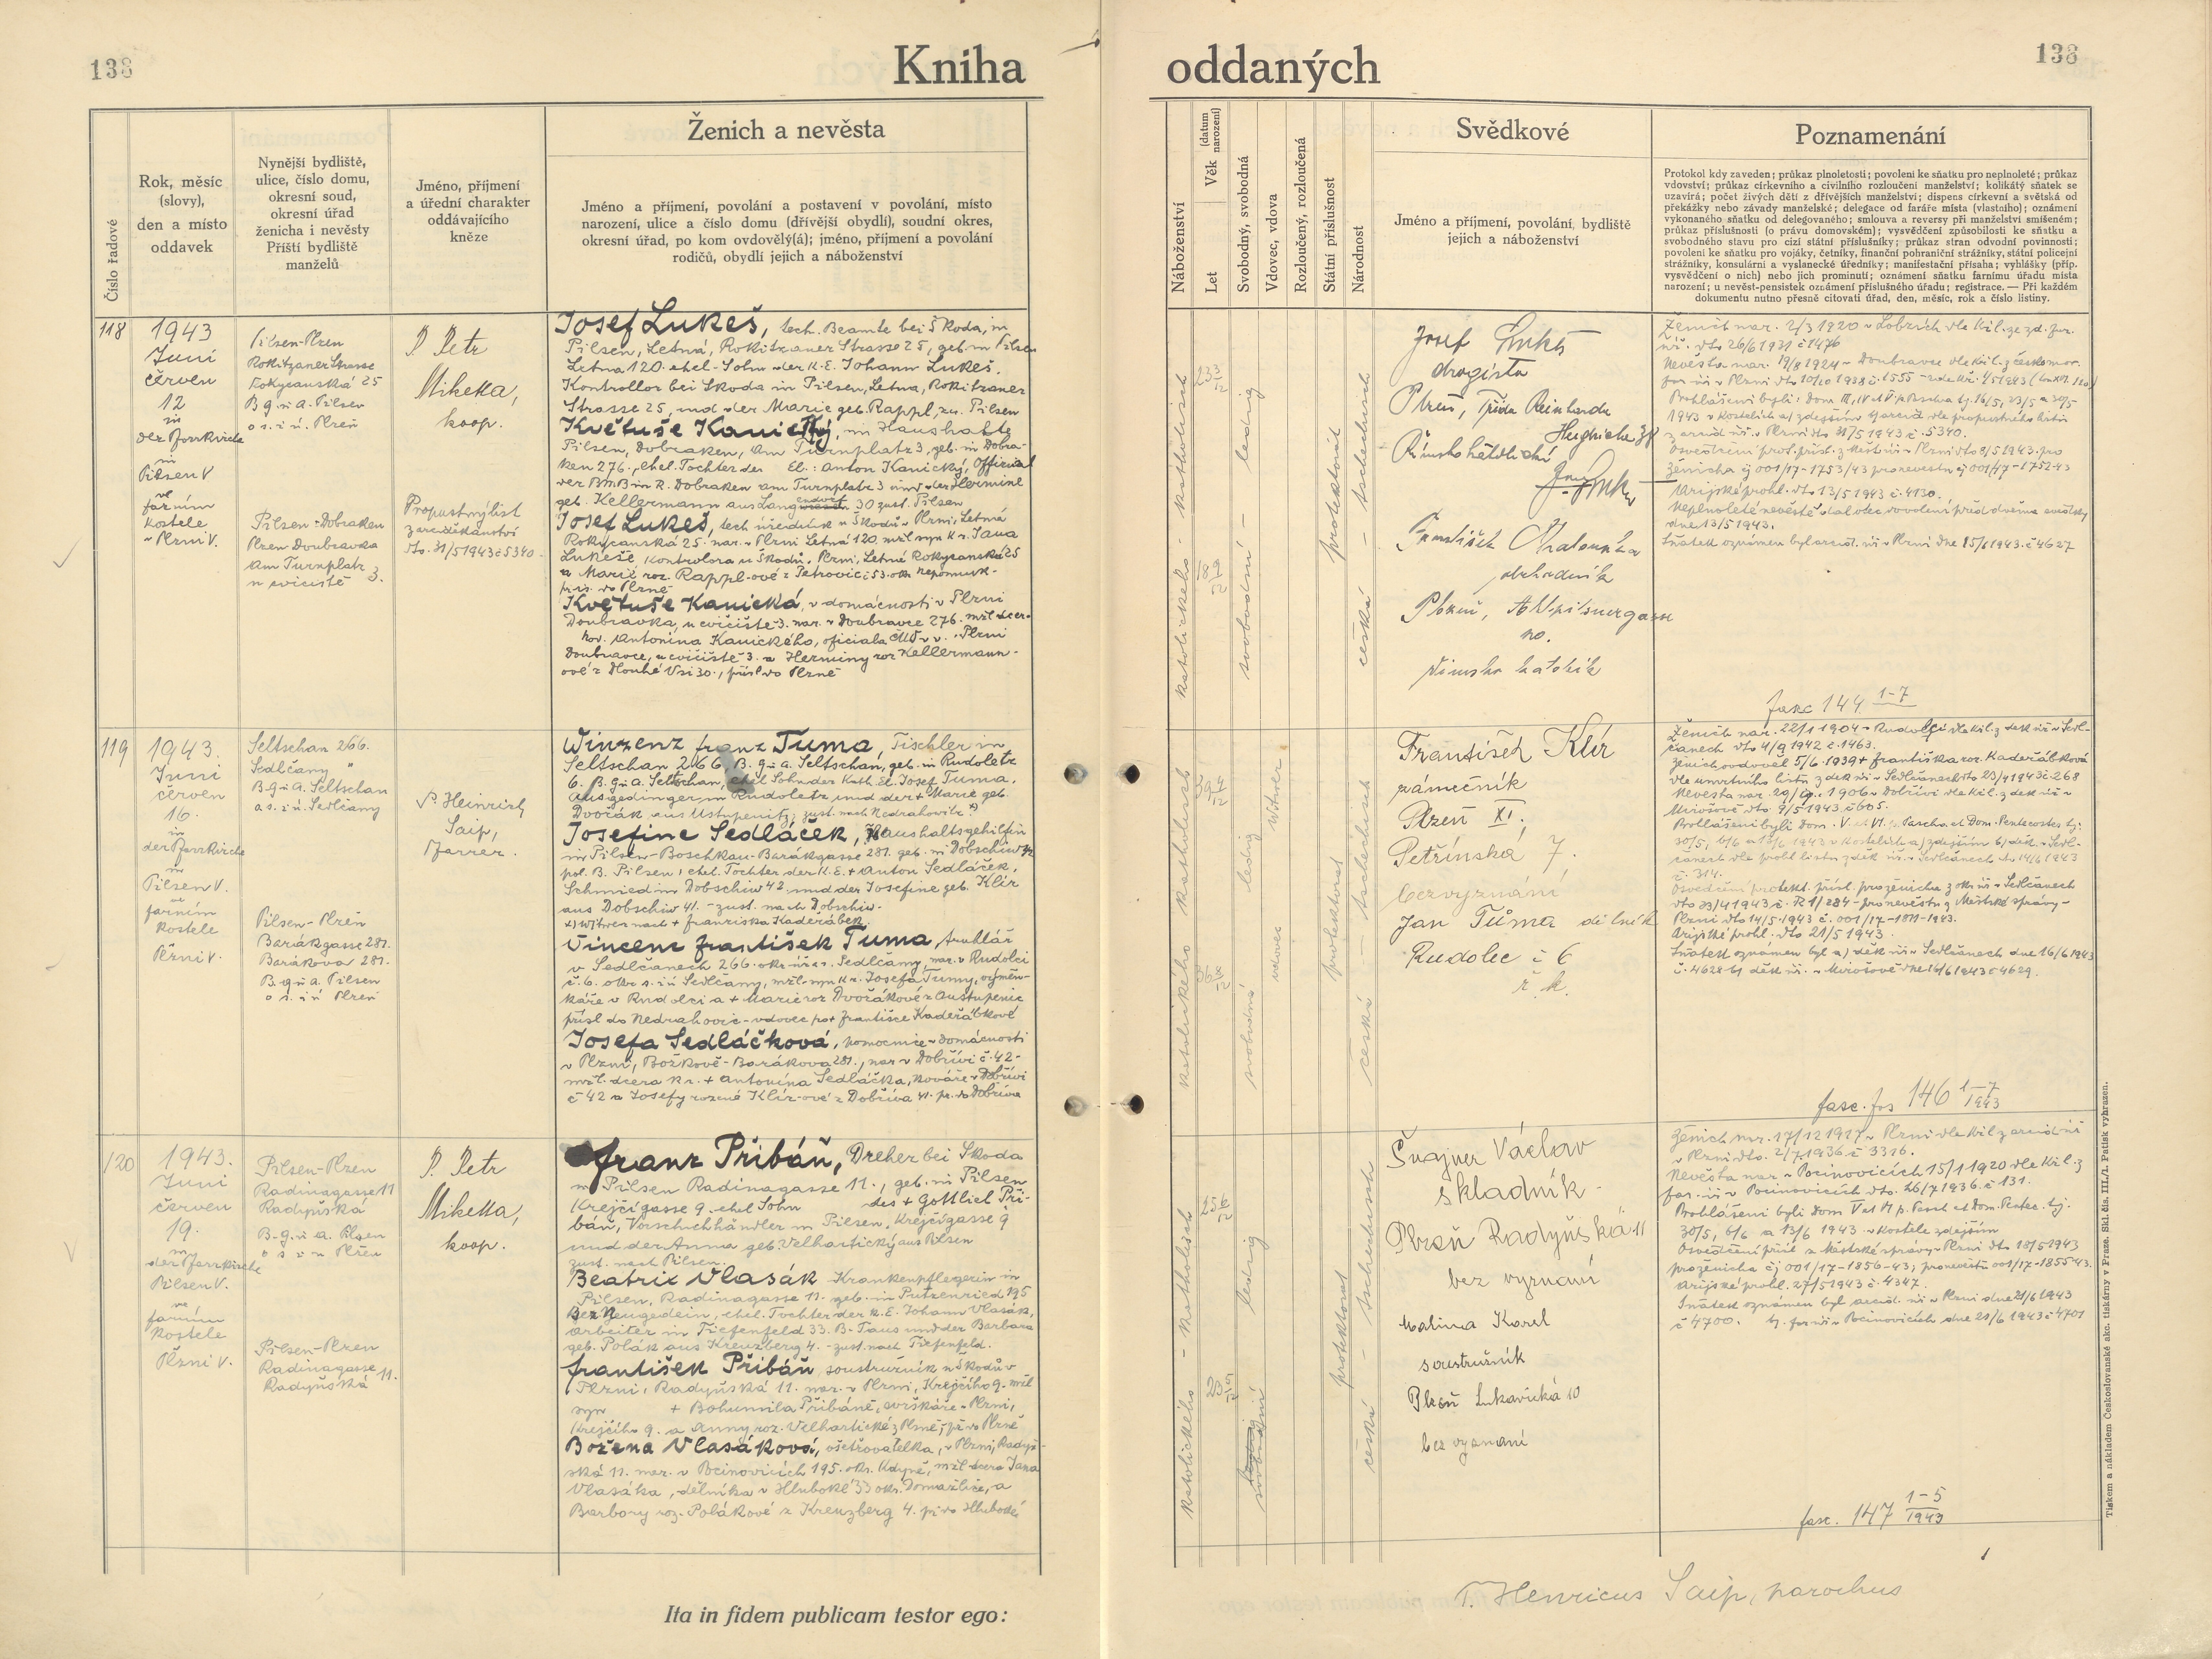 138
Kniha
oddaných
138
Číslo řadové
Rok, měsíc
(slovy),
den a místo
oddavek
Nynější bydliště,
ulice, číslo domu,
okresní soud,
okresní úřad
ženicha i nevěsty
Příští bydliště
manželů
Jméno, příjmení
a úřední charakter
oddávajícího
kněze
Ženich a nevěsta
Jméno a příjmení, povolání a postavení v povolání, místo
narození, ulice a číslo domu (dřívější obydlí), soudní okres,
okresní úřad, po kom ovdovělý(á); jméno, příjmení a povolání
rodičů, obydlí jejich a náboženství
Náboženství
Let
Věk (datum narození)
Svobodný, svobodná
Vdovec, vdova
Rozloučený, rozloučená
Státní příslušnost
Národnost
Svědkové
Jméno a příjmení, povolání, bydliště
jejich a náboženství
Poznamenání
Protokol kdy zaveden; průkaz plnoletosti; povolení ke sňatku pro neplnoleté; průkaz
vdovství; průkaz církevního a civilního rozloučení manželství; kolikátý sňatek se
uzavírá; počet živých dětí z dřívějších manželství; dispens církevní a světská od
překážky nebo závady manželské; delegace od faráře místa (vlastního); oznámení
vykonaného sňatku od delegovaného; smlouva a reversy při manželství smíšeném;
průkaz příslušnosti (o právu domovském); vysvědčení způsobilosti ke sňatku a
svobodného stavu pro cizí státní příslušníky; průkaz stran odvodní povinnosti;
povolení ke sňatku pro vojáky, četníky, finanční pohraniční strážníky, státní policejní
strážníky, konsulární a vyslanecké úředníky; manifestační přísaha; vyhlášky (příp.
vysvědčení o nich) nebo jich prominutí; oznámení sňatku farnímu úřadu místa
narození; u nevěst-pensistek oznámení příslušného úřadu; registrace. — Při každém
dokumentu nutno přesně citovati úřad, den, měsíc, rok a číslo listiny.
118
1943
Juni
červen
12
in
der Pfarrkirche
in
Pilsen V
ve
farním
kostele
v Plzni V.
Pilsen-Plzen
Rokitzaner Strasse
Rokycanská 25
B.g. u. a. Pilsen
o s. i ú. Plzeň
Pilsen-Dobraken
Plzen Doubravka
Am Turnplatz 3.
u cvičiště
P. Petr
Mikeka,
koop.
Propustný list
z arciděkanství
dto. 31/5 1943 č 5340.
Josef Lukeš, tech. Beamte bei Škoda, in
Pilsen, Letná, Rokitzaner Strasse 25, geb. in Pilsen
Letna 120. ehel. Sohn der K.E. Johann Lukeš,
Kontrollor bei Skoda in Pilsen, Letna, Rokitzaner
Strasse 25, und der Marie geb. Rappl, zu. Pilsen
Květuše Kanický, im Haushalte
Pilsen, Dobraken, Am Turnplatz 3, geb. in Dobra-
ken 276., ehel. Tochter der El.: Anton Kanický, Offizial
der BMB in R. Dobraken am Turnplatz 3 und der Hermine
geb. Kellermann aus Langendorf 30 zust. Pilsen
Josef Lukeš, tech úředník u Škodů v Plzni, Letná
Rokycanská 25. nar. v Plzni Letná 120. mžl syn k. r. Jana
Lukeše, kontrolora u Škodů, Plzni, Letná Rokycanská 25
a Marie roz. Rappl-ové z Petrovic č 53. okr. Nepomuk-
přís. do Plzně
Květuše Kanická, v domácnosti v Plzni
Doubravka, u cvičiště 3. nar. v Doubravce 276. mžl dcer-
Antonína Kanického, oficiala v Plzni
Doubravce, u cvičiště 3. a Herminy roz Kellermann-
ové z Dlouhé Vsi 30., přísl do Plzně
katolického - katholisch
svobodní - ledig
protektorát
česká - tschechisch
Josef Lukeš
drogista
Plzeň, Třída Reinharda
Heydricha 38
Římskokatolické
František Chaloupka
obchodník
Plzeň,
no.
římsko katolík
Ženich nar. 2/3 1920 v Lobzích dle kil. ze zd. far.
úř. dto 26/6 1931 č 1476
Nevěsta nar. 19/8 1924 v Doubravce dle kil. z českomor.
Prohlášeni byli: Dom III, IV et V p. Pascha tj. 16/5, 23/5 a 30/5
1943 v kostelích a) zdejším
z arciděk. úř. v Plzni dto 31/5 1943 č. 5340.
ženicha čj 001/17-1753/43 pro nevěstu čj 001/17-1752-43
Arijské prohl. dto 13/5 1943 č. 4130.
Neplnoleté nevěstě dal otec dovolení před dvěma svědky
dne 13/5 1943.
Sňatek oznámen byl arciděk. úř. v Plzni dne 15/6 1943. č 4627
fasc 144 1-7
119
1943.
Juni
červen
16.
in
der Pfarrkirche
in
Pilsen V.
ve
farním
kostele
Plzni V.
Seltschan 266.
Sedlčany "
B.g. u. A. Seltschan
o s. i ú. Sedlčany
Pilsen-Plzeň
Barákgasse 281.
Barákova 281.
B.g. u. A. Pilsen
o s. i ú Plzeň
P. Heinrich
Saip,
Pfarrer.
Winzenz Franz Tuma, Tischler in
Seltschan 266, B. g. u. A. Seltschan, geb. in Rudoletz
6. B. g. u. A. Seltschan, ehel Sohn der Kath. El. Josef Tuma,
Ausgedinger in Rudoletz und der + Marie geb.
Dvořák aus Ustupenitz, zust. nach Nedrahowitz +)
Josefine Sedláček, Haushaltsgehilfin
in Pilsen-Boschkau-Barákgasse 281. geb. in Dobschiw 42
pol. B. Pilsen, ehel. Tochter der K.E. + Anton Sedláček,
Schmied in Dobschiw 42 und der Josefine geb. Klír
aus Dobschiw 41. - zust. nach Dobschiw.
+) Witwer nach + Franziska Kadeřábek.
Vincenc František Tuma, truhlář
v Sedlčanech 266. okr. úř. a s. Sedlčany, nar. v Rudolci
č. 6. okr. s. i ú Sedlčany, mžl. syn k r. Josefa Tumy, výměn-
káře v Rudolci a + Marie roz Dvořákové z Austupenic
přísl do Nedrahovic - vdovec po + Františce Kadeřábkové
Josefa Sedláčková, pomocnice v domácnosti
v Plzni, Božkově - Barákova 281., nar v Dobřívi č. 42-
mžl. dcera k r. + Antonína Sedláčka, kováře v Dobřívi
č 42 a Josefy rozené Klír-ové z Dobříva 41. př. do Dobříva
katolického katholisch
svobodná ledig
vdovec Witwer
protektorat
česká - tschechisch
František Klír
zámečník
Plzeň XI.
Petřínská 7.
bezvyznání
Jan Tůma dělník
Rudolec č 6
ř. k.
Ženich nar. 22/1 1904 v Rudolci dle kil. z děk. úř. v Sedl-
čanech dto 4/9 1942 č. 1463.
Ženich ovdověl 5/6 1939 + Františka roz. Kadeřábková
dle úmrtního listu z děk úř. v Sedlčanech dto 23/4 1943 č. 268
Mirošově dto. 9/5 1943 č 605.
Prohlášeni byli Dom. V. et VI. p. Pascha et Dom. Pentecostes tj.
30/5, 6/6 a 13/6 1943 v kostelích a) zdejším b) děk. v Sedl-
čanech dle prohl listu z děk úř. v Sedlčanech dto 14/6 1943
č. 314.
Osvědčení protekt. přísl. pro ženicha z okr. úř. v Sedlčanech
dto 23/4 1943 č. R1/284 - pro nevěstu z Městské správy v
Plzni dto 14/5 1943 č. 001/17-1871-1943.
Arijské prohl. dto 21/5 1943.
Sňatek oznámen byl a) děk. úř. v Sedlčanech dne 16/6 1943
č. 4628 b) děk úř. v Mirošově dne 16/6 1943 č 4629.
fasc. fos 146 1-7 1943
120
1943.
Juni
červen
19.
in
der Pfarrkirche
Pilsen V.
ve
farním
kostele
Plzni V.
Pilsen-Plzen
Radinagasse 11
Radyňská
B.g. u. a. Pilsen
o s i ú Plzen
Pilsen-Plzen
Radinagasse 11.
Radyňská
P. Petr
Mikeka,
koop.
Franz Přibáň, Dreher bei Skoda
in Pilsen Radinagasse 11., geb. in Pilsen
Krejčígasse 9. ehel Sohn des + Gottlieb Při-
báň, Vorschuhhändler in Pilsen, Krejčígasse 9
und der Anna geb. Velhartický aus Pilsen
zust. nach Pilsen.
Beatrix Vlasák Krankenpflegerin in
Pilsen, Radinagasse 11. geb. in Putzenried 195
Bez Neugedein, ehel. Tochter der K. E. Johann Vlasák,
Arbeiter in Tiefenfeld 33. B. Taus und der Barbara
geb. Polák aus Kreuzberg 4. - zust. nach Tiefenfeld.
František Přibáň soustružník u Škodů v
Plzni, Radyňská 11. nar. v Plzni, Krejčího 9. mžl
syn + Bohumila Přibáně, svrškáře v Plzni,
Krejčího 9. a Anny roz. Velhartické z Plzně, př. do Plzně
Božena Vlasáková, ošetřovatelka, v Plzni, Radyň-
ská 11. nar. v Pocinovicích 195. okr. Kdyně, mžl dcera Jana
Vlasáka, dělníka v Hluboké 33 okr. Domažlice, a
Barbory roz. Polákové z Kreuzberg 4. př. do Hluboké
katolického - katholisch
svobodní ledig
protektorat
česká - tschechisch
Šnajner Václav
skladník
Plzeň Radyňská 11
bez vyznání
Malina Karel
soustružník
Plzeň Lukavická 10
bez vyznání
Ženich nar. 17/12 1917 v Plzni dle kil z arciděk úř
v Plzni dto. 2/7 1936. č 3316.
Nevěsta nar. v Pocinovicích 15/1 1920 dle kil. z
far. úř. v Pocinovicích dto. 26/7 1936. č 131.
Prohlášeni byli Dom V et VI p. Pasch et Dom. Pentec. tj.
30/5, 6/6 a 13/6 1943 v kostele zdejším
Osvědčení přísl z Městské správy v Plzni dto 18/5 1943
pro ženicha čj 001/17-1856-43; pro nevěstu 001/17-1855-43.
Arijské prohl. 27/5 1943 č. 4347.
Sňatek oznámen byl arciděk. úř. v Plzni dne 21/6 1943
č 4700. b) far úř. v Pocinovicích dne 21/6 1943 č 4701
fasc. 147 1-5 1943
Ita in fidem publicam testor ego:
P. Henricus Saip, parochus
Tiskem a nákladem Československé akc. tiskárny v Praze. Skl. čís. III./1. Patisk vyhrazen.